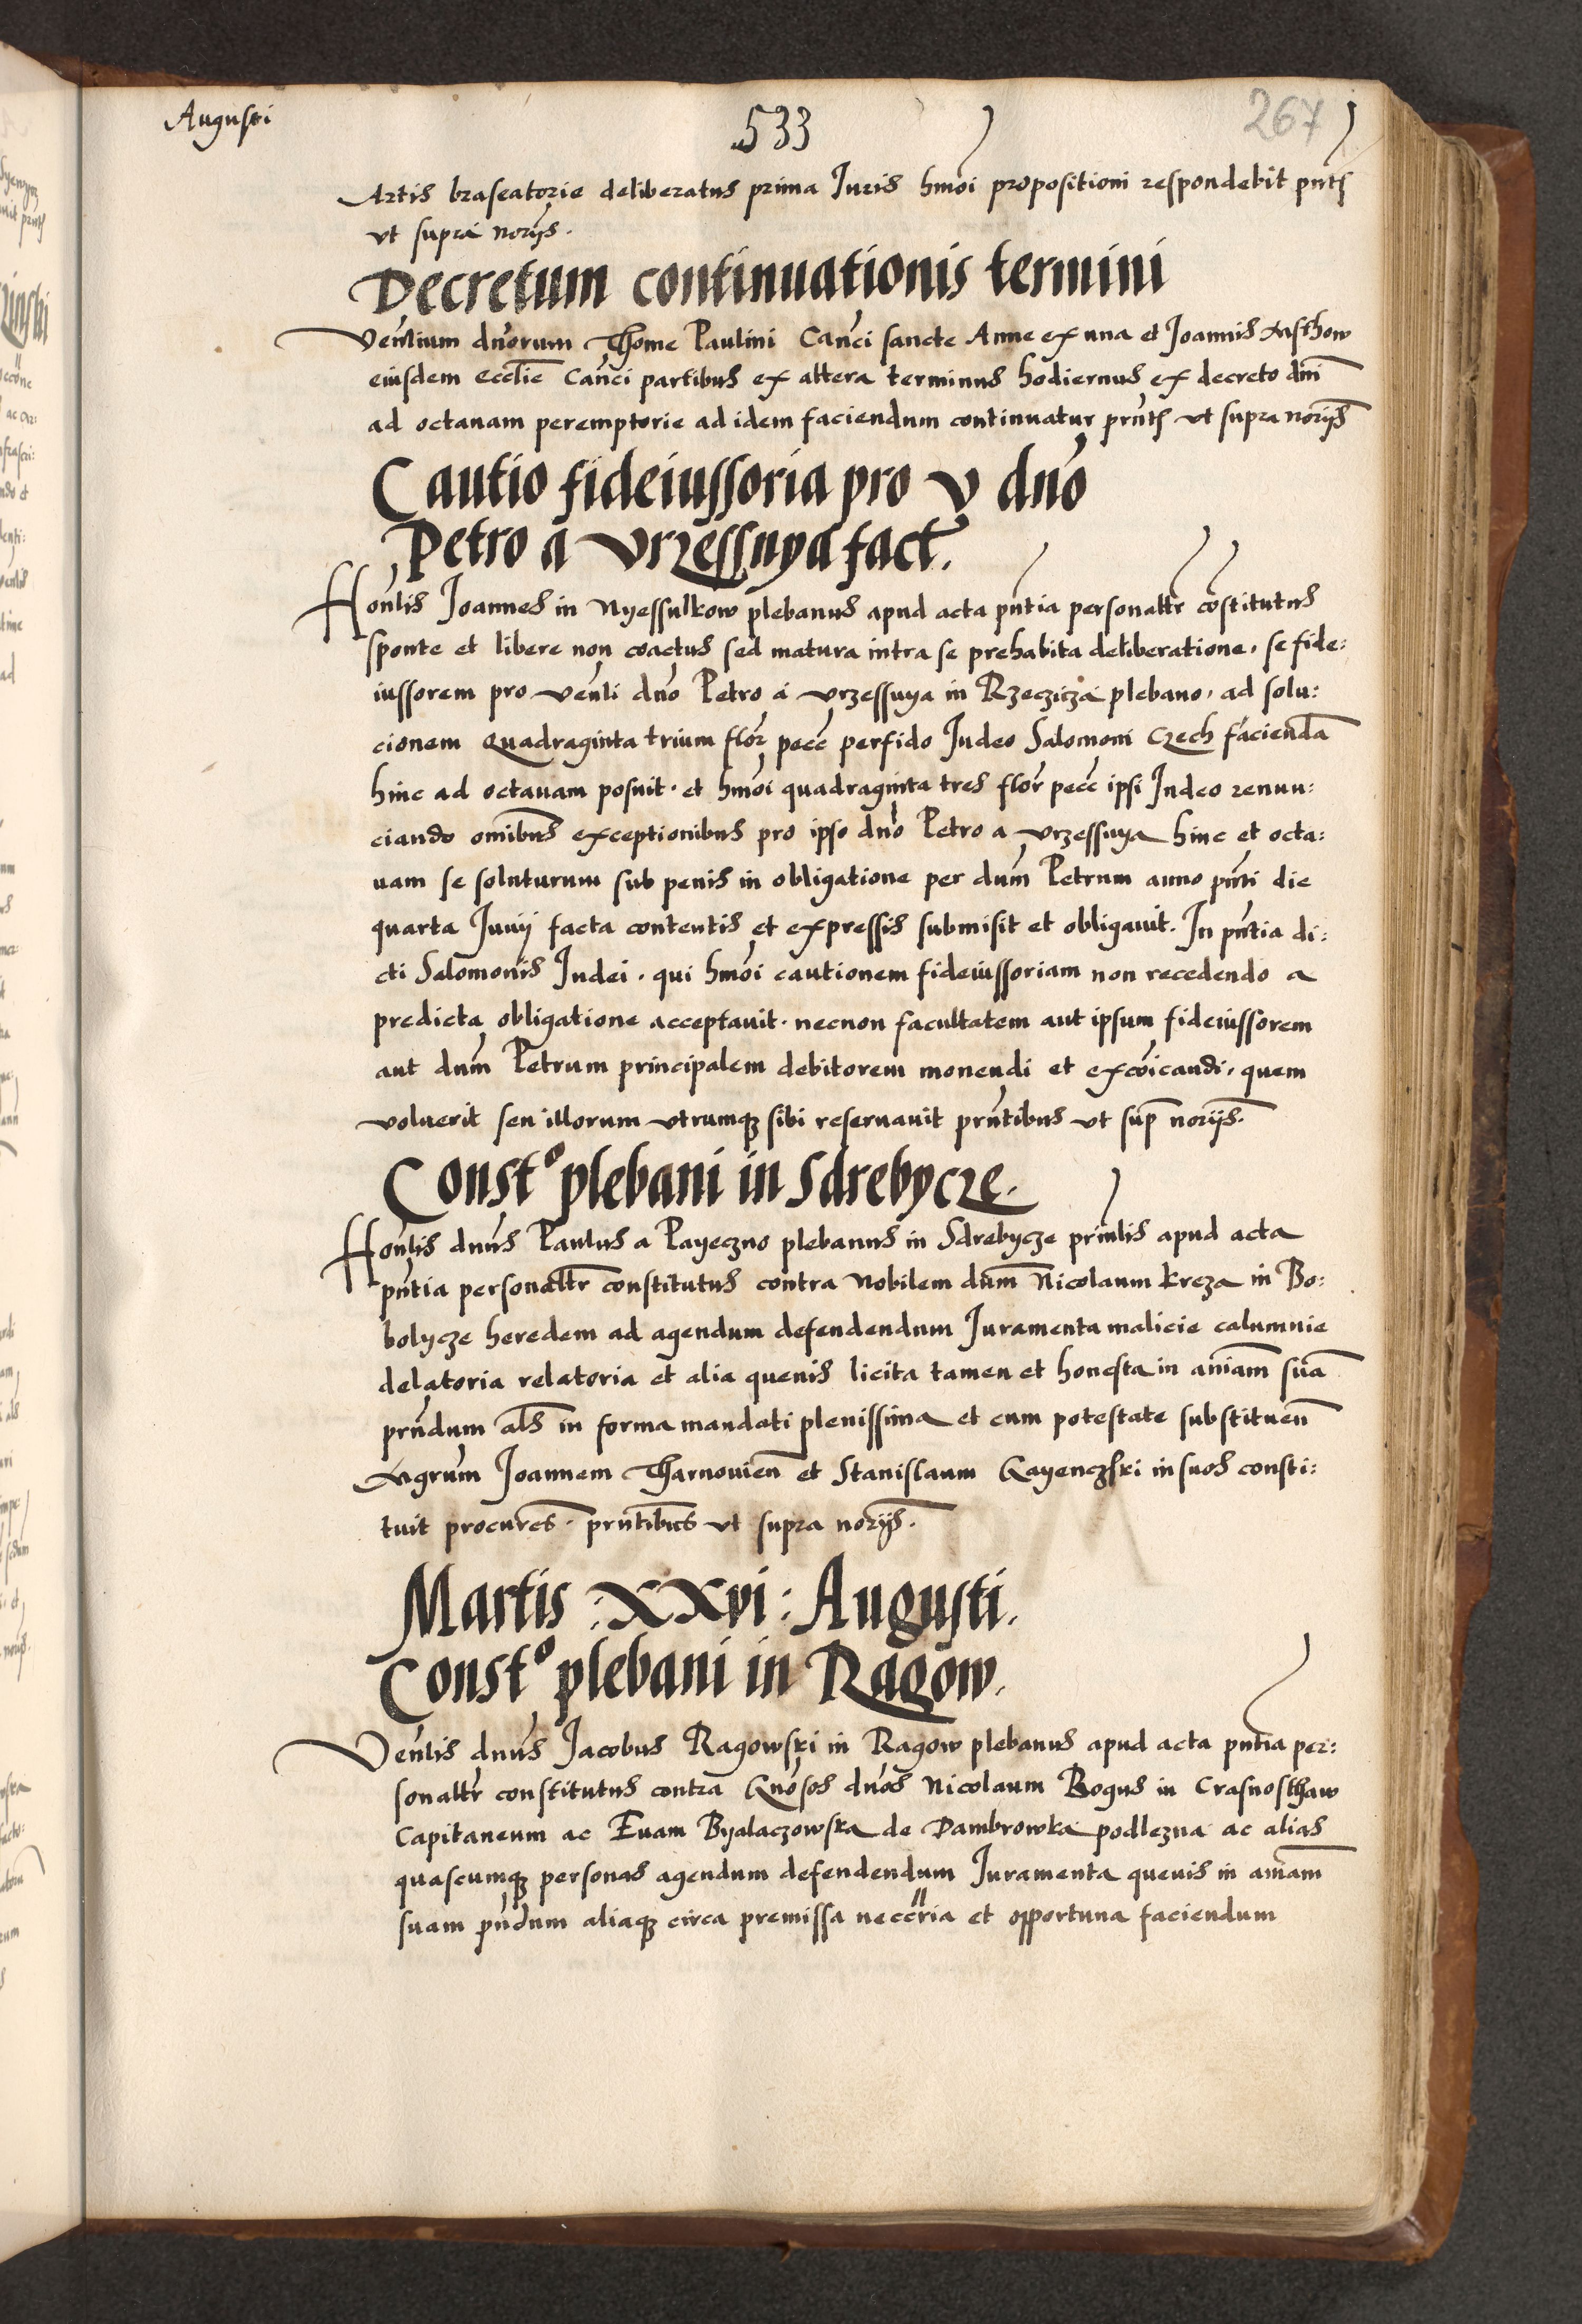 Augusti
533
267
Artis braseatorie deliberatus prima Juris hmoi propositioni respondebit pntibus
vt supra noriis.
Decretum continuationis termini
Venlium dnorum Thome Paulini Canci sancte Anne ex una et Joannis
eiusdem ecclie Canci partibus ex altera terminus hodiernus ex decreto dni
ad octauam peremptorie ad idem faciendum continuatur prntibus vt supra noriis
Cautio fideiussoria pro v dno
Petro a Vrzessnya fact.
Honlis Joannes in Nyessulkow plebanus apud acta pntia personaltr costitutus
sponte et libere non coactus sed matura intra se prehabita deliberatione, se fide:
iussorem pro Venli dno Petro a vrzessnya in Rzeczicza plebano, ad solu:
cionem Quadraginta trium flor pecc perfido Judeo Salomoni Czech facienda
hinc ad octauam posuit. et hmoi quadraginta tres flor pecc ipsi Judeo renun:
ciando omibus exceptionibus pro ipso dno Petro a vrzessnya hinc et octa:
uam se soluturum sub penis in obligatione per dum Petrum anno pnti die
quarta Junij facta contentis et expressis submisit et obligauit. In pntia di:
cti Salomonis Judei. qui hmoi cautionem fideiussoriam non recedendo a
predicta obligatione acceptauit. necnon facultatem aut ipsum fideiussorem
aut dnm Petrum principalem debitorem monendi et excoicandi, quem
voluerit seu illorum vtrumq sibi reseruauit prntibus vt sup noriis.
Const° plebani in Sdrebycze.
Honlis dnus Paulus a Payeczno plebanus in Sdrebycze prinlis apud acta
pntia personaltr constitutus contra Nobilem dum Nicolaum kreza in Bo:
bolycze heredem ad agendum defendendum Juramenta malicie calumnie
delatoria relatoria et alia queuis licita tamen et honesta in aniam sua
prndum als in forma mandati plenissima et cum potestate substituen
Mgrum Joannem Tharnouien et Stanislaum Gayenczski in suos consti:
tuit procures. prntibus vt supra noriis.
Martis : XXVI : Augusti.
Const° plebani in Ragow.
Venlis dnus Jacobus Ragowski in Ragow plebanus apud acta pntia per:
sonaltr constitutus contra Gnosos dnos Nicolaum Bogus in Crasnosthaw
Capitaneum ac Euam Byalaczowska de Dambrowka podlezna ac alias
quascumq personas agendum defendendum Juramenta queuis in aniam
suam pndum aliaq circa premissa neccria et opportuna faciendum